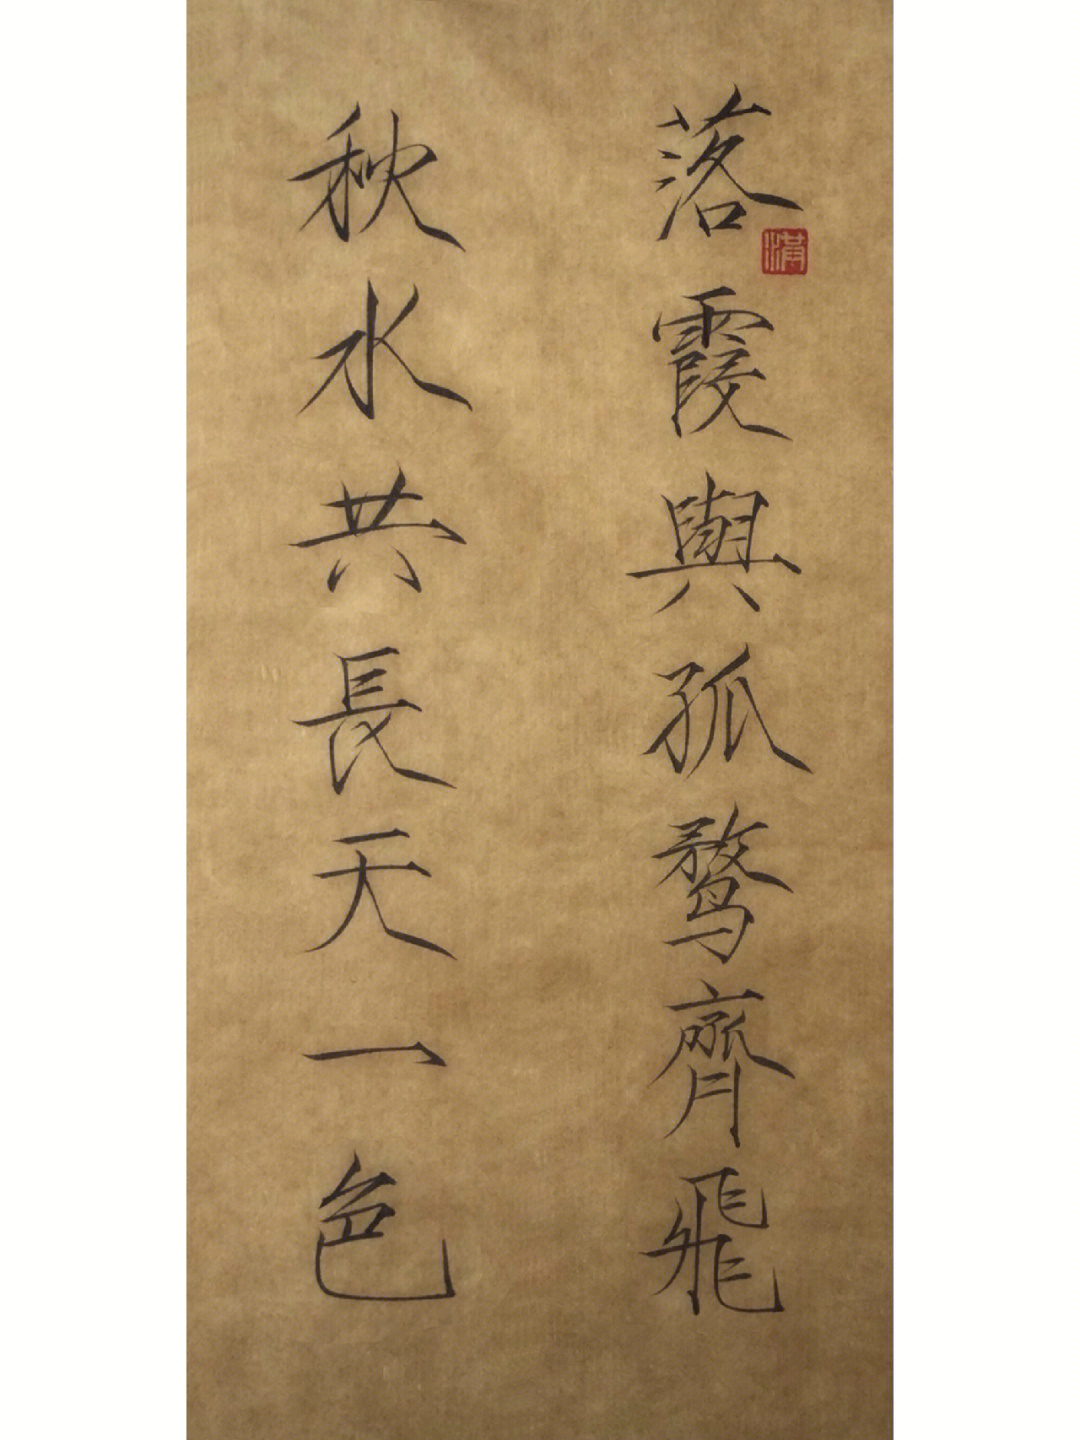 落霞與孤鹜齊飛
秋水共長天一色